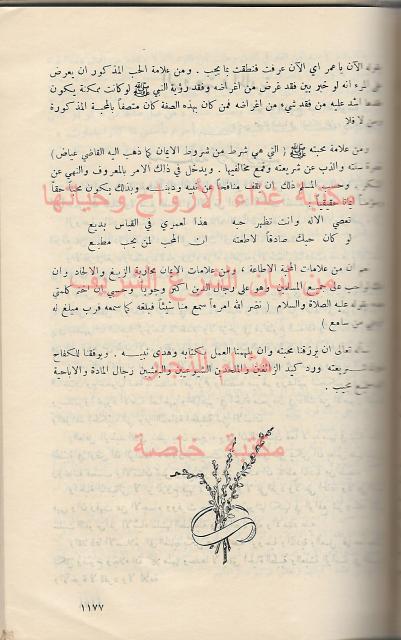 قوله الآن يا عمر اي الآن عرفت فنطقت بما يجب . ومن علامة الحب المذكور ان يعرض
على المرء انه لو خير بين فقد غرض من اغراضه وفقد رؤية النبي ﷺ لو كانت ممكنة يكون
فقدها اشد عليه من فقد شيء من اغراضه فمن كان بهذه الصفة كان متصفاً بالمحبة المذكورة
ومن لا فلا
ومن علامة محبته ﷺ ( التي هي شرط من شروط الايمان كما ذهب اليه القاضي عياض )
نصرة سنته والذب عن شريعته وقمع مخالفيها . ويدخل في ذلك الامر بالمعروف والنهي عن
المنكر . وحسب المسلم ذلك ان يقف منافحاً عن نبيه ودينه . وبذلك يكون محباً حقا
مكتبة غذاء الارواح وحياتها
تعصي الاله وانت تظهر حبه هذا لعمري في القياس بديع
لو كان حبك صادقاً لاطعته ان المحب لمن يحب مطيع
ان من علامات المحبة الاطاعة ، ومن علامات الايمان محاربة الزيغ والالحاد وان
على جميع المسلمين
من
الشريف
قوله عليه الصلاة والسلام ( نضر الله امرءاً سمع منا شيئاً فبلغه كما سمعه فرب مبلغ له
اوعى من سامع )
تعالى ان يرزقنا محبته وان يلهمنا العمل بكتابه وهدى نبيه . ويوفقنا للكفاح
هشام النجار
شريعته ورد كيد الزائغين والملحدين رجال المادة والاباحية
مجيب .
مكتبة خاصة
١١٧٧